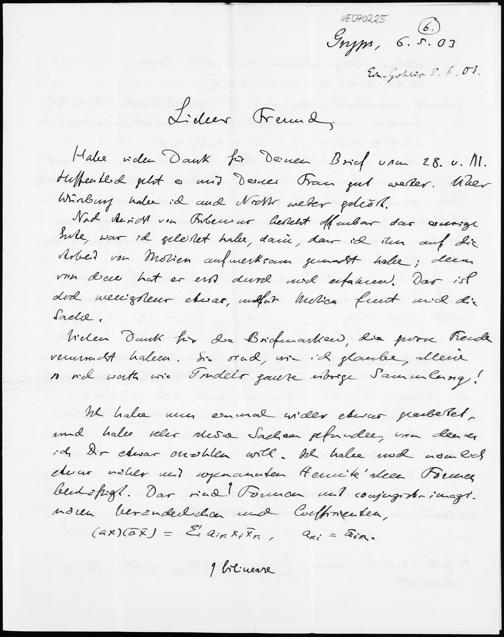 NEC070225
6.
Gryps, 6.5.03
Lieber Freund,
Habe vielen Dank für Deinen Brief vom 28. v. M.
Hoffentlich geht es mit Deiner Frau gut weiter. Über
Würzburg habe ich auch Nichts weiter gehört.
Nach Ansicht von Frobenius besteht offenbar das einzige
Gute, was ich geleistet habe, darin, dass ich ihn auf die
Arbeit von Molien aufmerksam gemacht habe; denn
von dieser hat er erst durch mich erfahren. Das ist
doch wenigstens etwas, und für Molien freut mich die
Sache.
Vielen Dank für die Briefmarken, die grosse Freude
verursacht haben. Sie sind, wie ich glaube, allein
so viel werth wie ganze übrige Sammlung!
Ich habe nun einmal wieder etwas gearbeitet,
und habe sehr schöne Sachen gefunden, von denen
ich Dir etwas erzählen will. Ich habe mich nämlich
etwas näher mit sogenannten Hermite'schen Formen
beschäftigt. Das sind Formen mit conjugirt imagi-
nären Veränderlichen und Coefficienten,
(ax)(āx̄) = Σ aᵢₖ xᵢ x̄ₖ, aₖᵢ = āᵢₖ.
bilineare